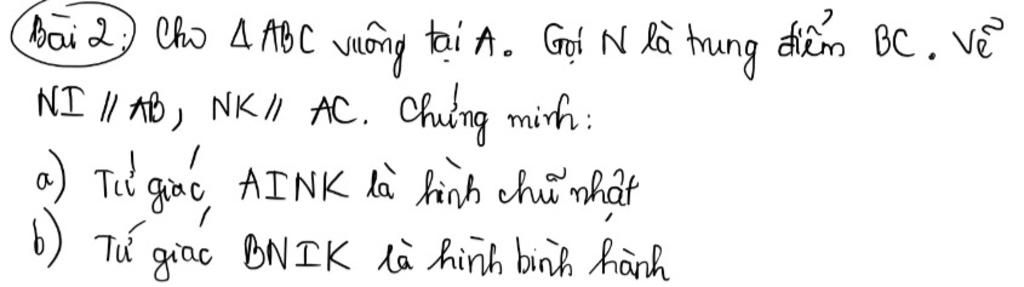 Bài 2: Cho Δ ABC vuông tại A. Gọi N là trung điểm BC. Vẽ
NI // AB, NK // AC. Chứng minh:
a) Tứ giác AINK là hình chữ nhật
b) Tứ giác BNIK là hình bình hành